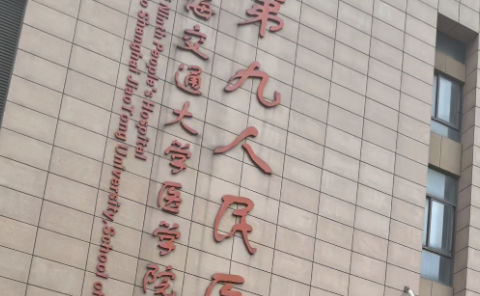 第九人民医
海交通大学医学院
Ninth People's Hospital
Shanghai Jiao Tong University School of